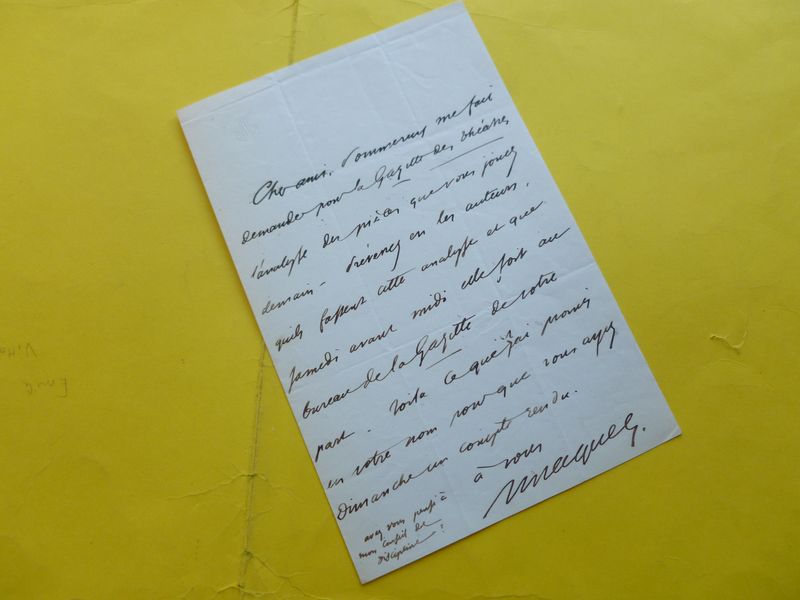 Cher ami. Pommereux me fait
demander pour la Gazette des théâtres
l'analyse des pièces que vous jouez
demain - Prévenez en les auteurs,
qu'ils fassent cette analyse et que
samedi avant midi elle soit au
bureau de la Gazette de votre
part - Voilà ce que j'ai promis
en votre nom pour que vous ayez
Dimanche un compte rendu.
à vous
Maquet.
avez vous pensé à
mon conseil de
Discipline?